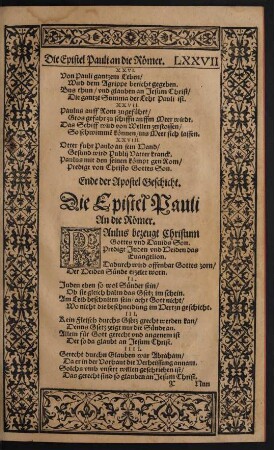 Die Epistel Pauli an die Römer. LXXVII
XXVI.
Von Pauli gantzem Leben/
Wird dem Agrippe bericht gegeben.
Bus thun/ vnd glauben an Jesum Christ/
Die gantze Summa der Lehr Pauli ist.
XXVII.
Paulus auff Rom zugeführt/
Gros gefahr zu schiffn auffm Meer würdt.
Das Schiff wird von Wellen zerstossen/
So schwimmē können, ins Meer sich lassen.
XXVIII.
Otter fuhr Paulo an sein Hand/
Gesund wird Publij Vatter kranck.
Paulus mit den seinen kömpt gen Rom/
Predigt von Christo Gottes Son.
Ende der Apostel Geschicht.
Die Epistel Pauli
An die Römer.
PAulus bezeugt Christum
Gottes vnd Dauids Son.
Predigt Jüden vnd Heiden das
Euangelion.
Dadurch wird offenbar Gottes zorn/
Der Heiden Sünde erzelet worn.
II.
Jüden eben so wol Sünder sein/
Ob sie gleich halen das Gsetz im schein.
Am Leib beschnitten sein/ acht Gott nicht/
Wo nicht die beschneidung im Hertzn geschicht.
III.
Kein Fleisch durchs Gsetz grecht werden kan/
Denns Gsetz zeigt nur die Sünde an.
Allein für Gott gerecht vnd angenem ist
Der so da glaubt an Jesum Christ.
IIII.
Gerecht durchs Glauben war Abraham/
Da er in der Vorhaut die Verheissung annam.
Solchs vmb vnsert willen geschrieben ist/
Das gerecht sind so glauben an Jesum Christ.
Nun